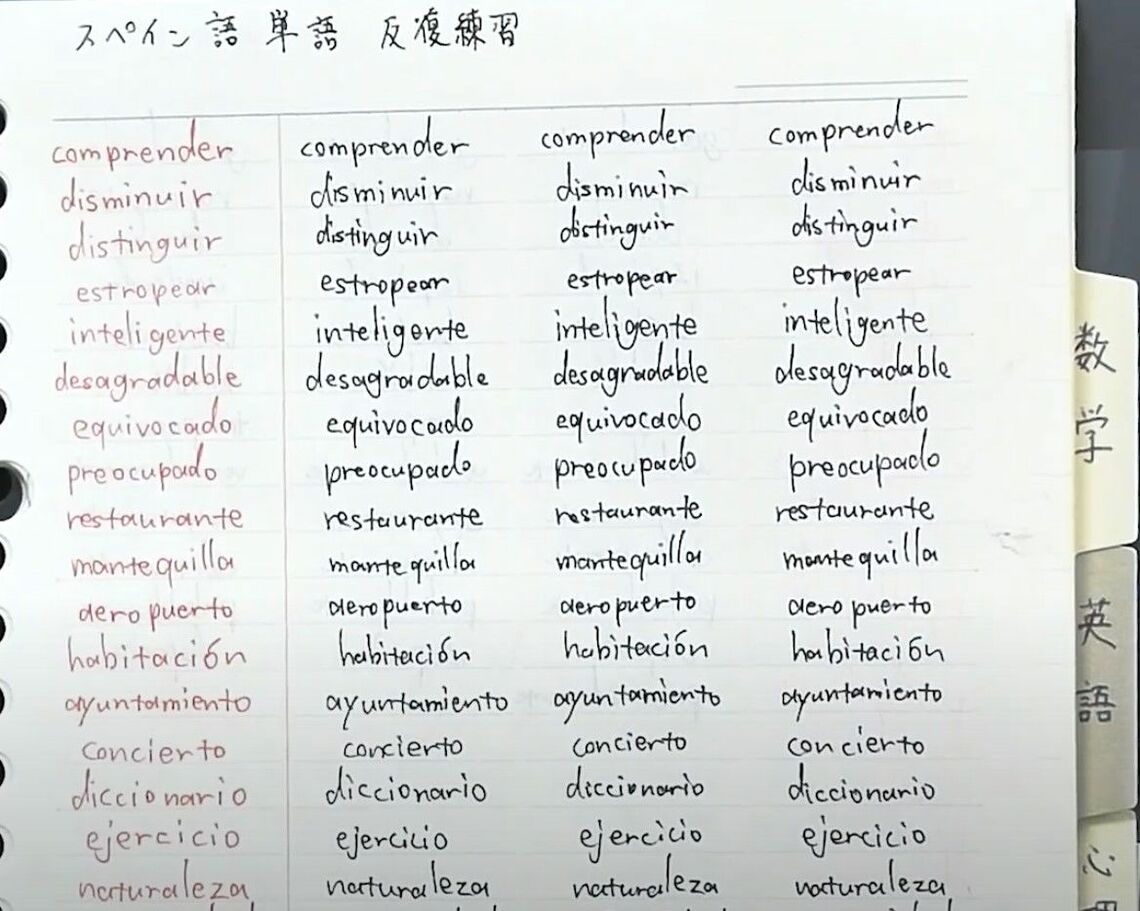 スペイン語 単語 反復練習
comprender comprender comprender comprender
disminuir disminuir disminuir disminuir
distinguir distinguir distinguir distinguir
estropear estropear estropear estropear
inteligente inteligente inteligente inteligente
desagradable desagradable desagradable desagradable
equivocado equivocado equivocado equivocado
preocupado preocupado preocupado preocupado
restaurante restaurante restaurante restaurante
mantequilla mantequilla mantequilla mantequilla
aeropuerto aeropuerto aeropuerto aeropuerto
habitación habitación habitación habitación
ayuntamiento ayuntamiento ayuntamiento ayuntamiento
concierto concierto concierto concierto
diccionario diccionario diccionario diccionario
ejercicio ejercicio ejercicio ejercicio
naturaleza naturaleza naturaleza naturaleza
数学
英語
心